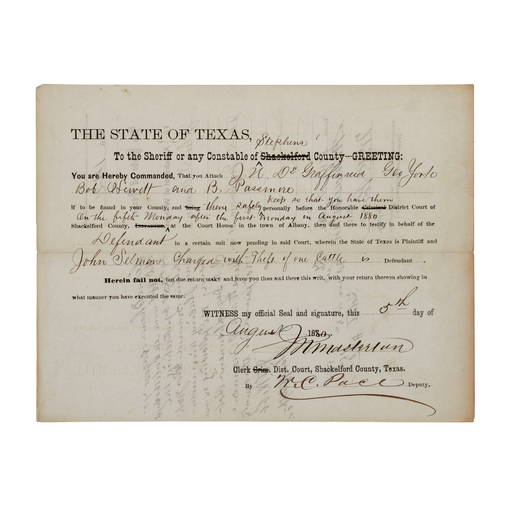 Stephens
THE STATE OF TEXAS,
To the Sheriff or any Constable of Shackelford County—GREETING:
You are Hereby Commanded, That you Attach J. N. De Graffenreid, Geo York
Bob Hewett and B. Passmore
keep so that you have them
If to be found in your County, and bring them safely personally before the Honorable Criminal District Court of
On the fifth Monday after the first Monday in August 1880
Shackelford County, at the Court House in the town of Albany, then and there to testify in behalf of the
Defendant in a certain suit now pending in said Court, wherein the State of Texas is Plaintiff and
John Selman Charged with Theft of one Cattle is Defendant
Herein fail not, but due return make and have you then and there this writ, with your return thereon showing in
what manner you have executed the same.
WITNESS my official Seal and signature, this 5th day of
August 1880.
J N Masterson
Clerk Crim. Dist. Court, Shackelford County, Texas.
By W. C. Pace Deputy.